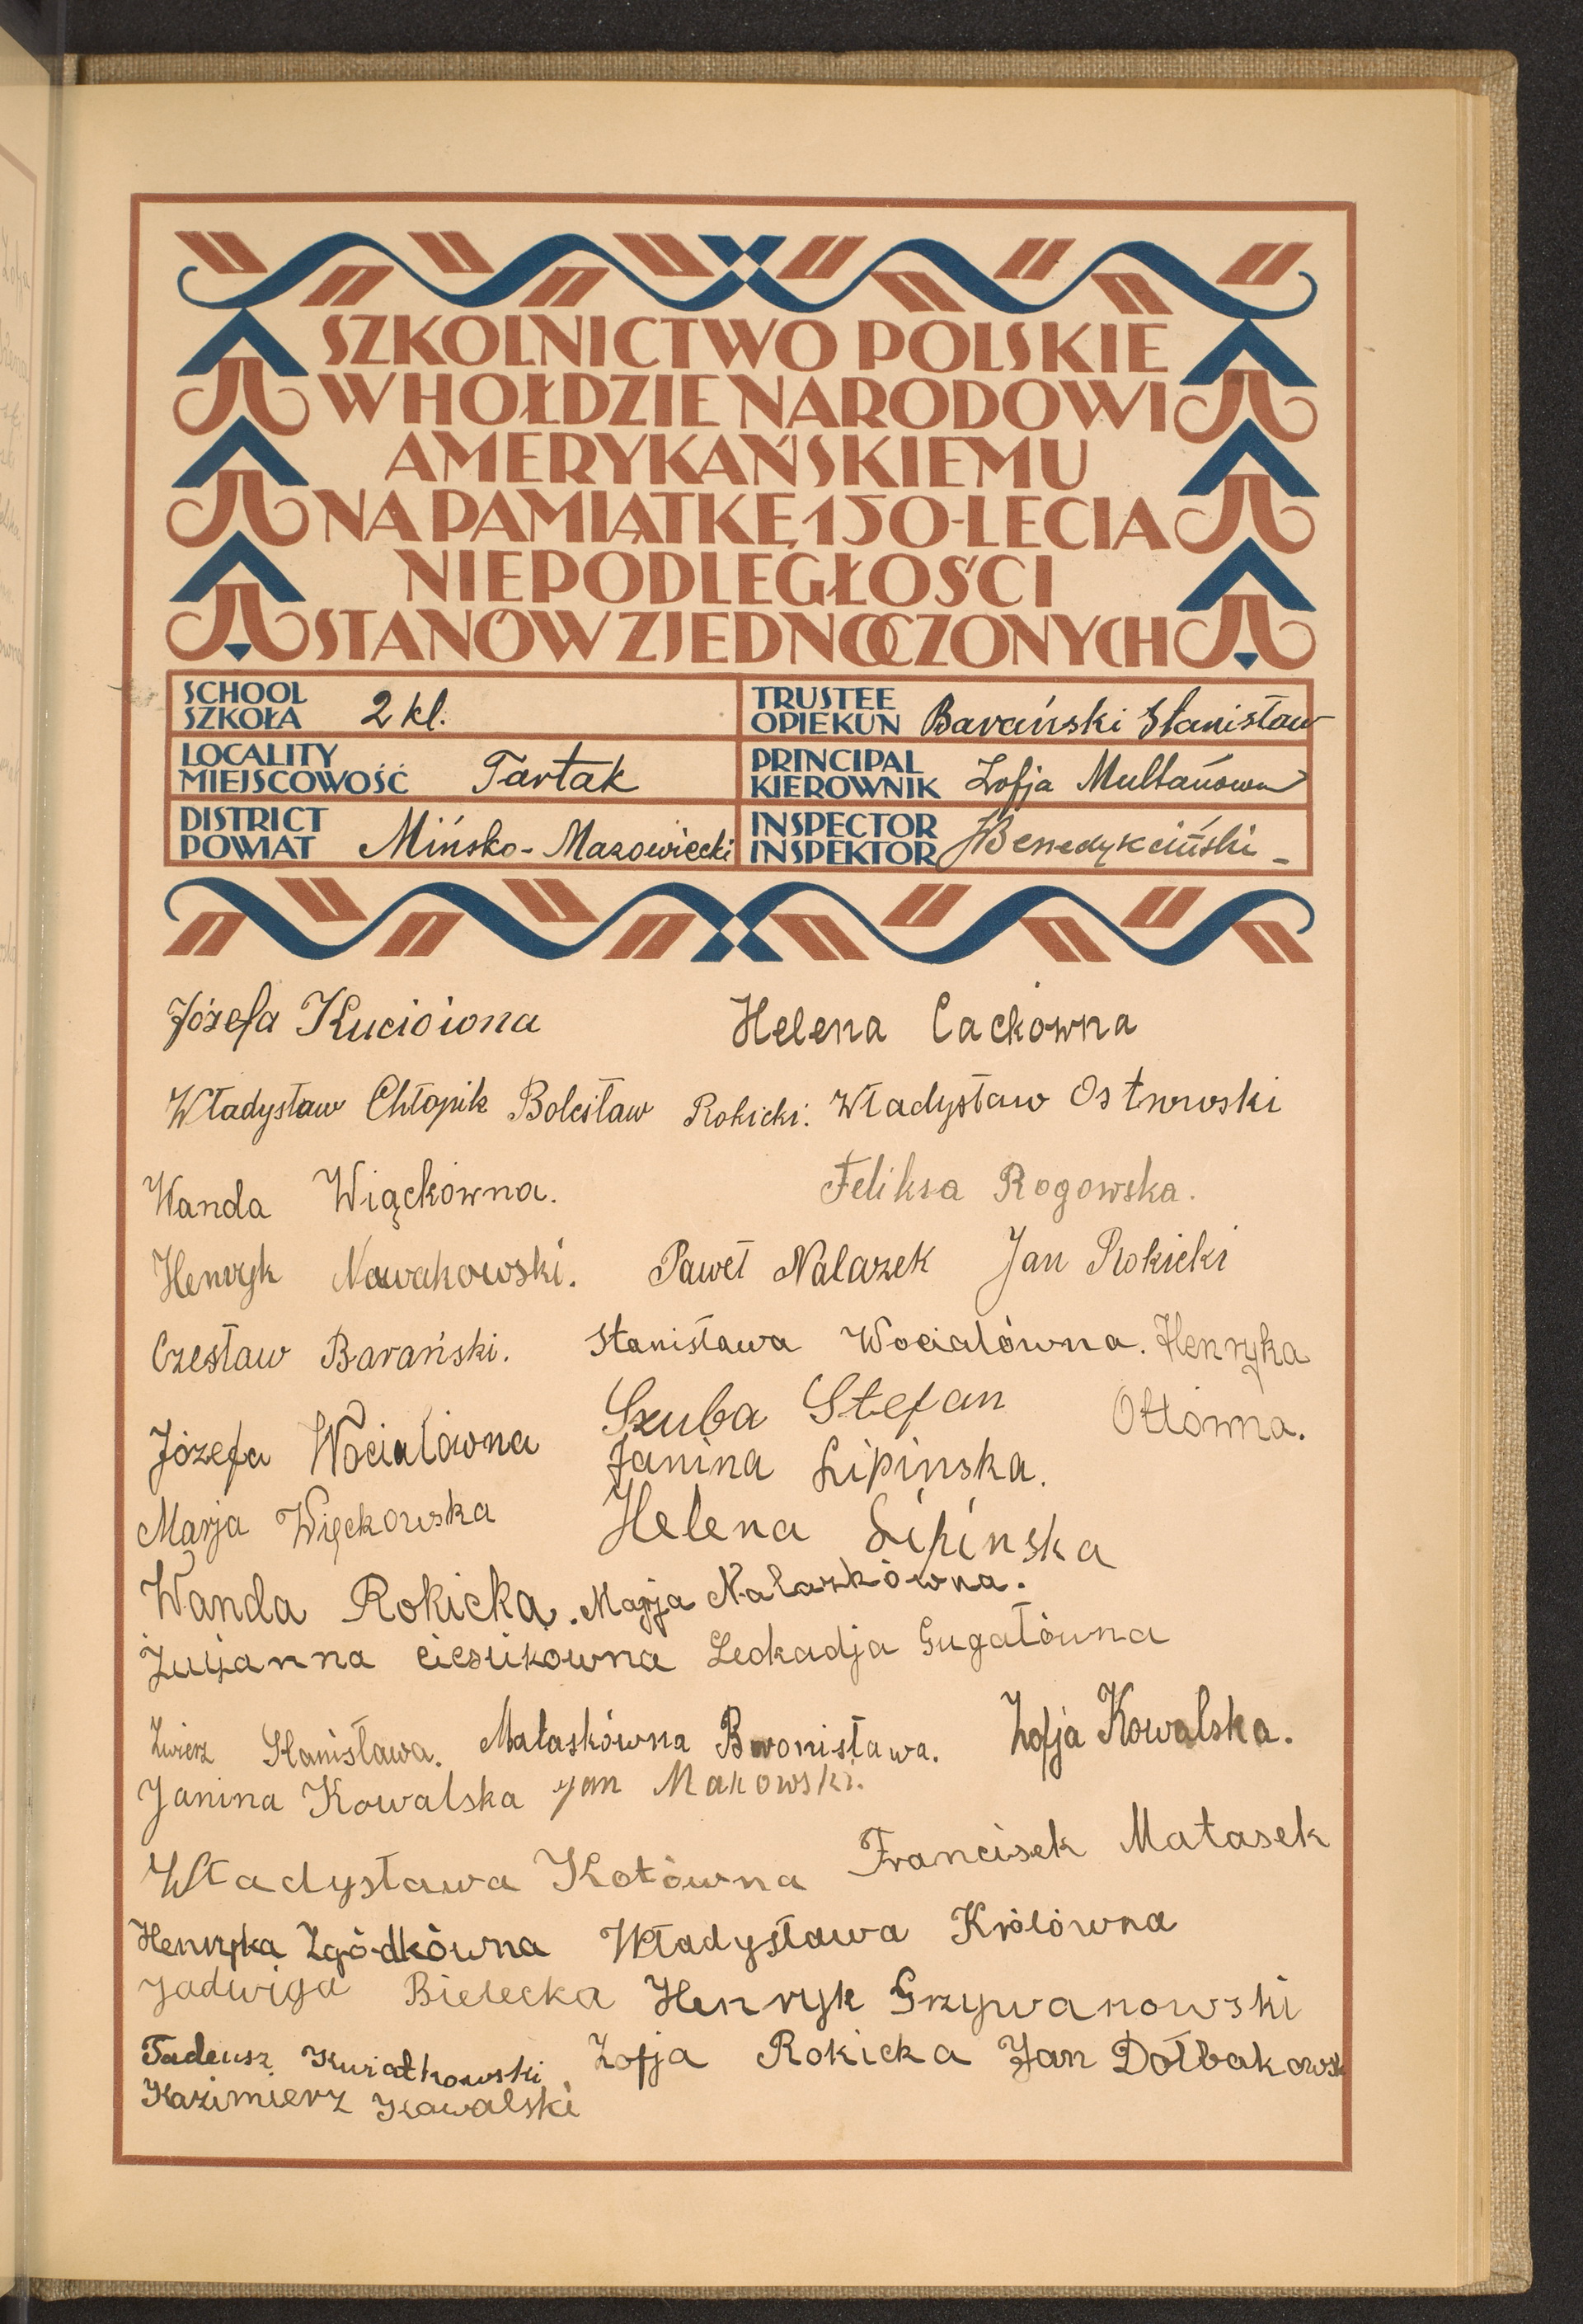 SZKOLNICTWO POLSKIE
W HOŁDZIE NARODOWI
AMERYKAŃSKIEMU
NA PAMIĄTKĘ 150-LECIA
NIEPODLEGŁOŚCI
STANÓW ZJEDNOCZONYCH
SCHOOL
SZKOŁA 2 kl.
TRUSTEE
OPIEKUN Barański Stanisław
LOCALITY
MIEJSCOWOŚĆ Tartak
PRINCIPAL
KIEROWNIK Zofja Multanowa
DISTRICT
POWIAT Mińsko-Mazowiecki
INSPECTOR
INSPEKTOR Benedykciński
Józefa Kuciówna Helena Cackówna
Władysław Chłopik Bolesław Rokicki. Władysław Ostrowski
Wanda Wiąckówna. Feliksa Rogowska.
Henryk Nowakowski. Paweł Nalazek Jan Rokicki
Czesław Barański. Stanisława Wocialówna. Henryka
Szuba Stefan Ołłówna.
Józefa Wocialówna Janina Lipinska.
Marja Więckowska Helena Lipinska
Wanda Rokicka. Marja Nalazkówna.
Zuzanna Leokadja Gugałówna
Zwierz Stanisława. Małaskówna Bronisława. Zofja Kowalska.
Janina Kowalska Jan Makowski.
Władysława Kotówna Francisek Małasek
Henryka Zgódkówna Władysława Królówna
Jadwiga Bielecka Henryk Grzywanowski
Tadeusz Kwiatkowski Zofja Rokicka Jan Dołbakowsk
Kazimierz Kowalski